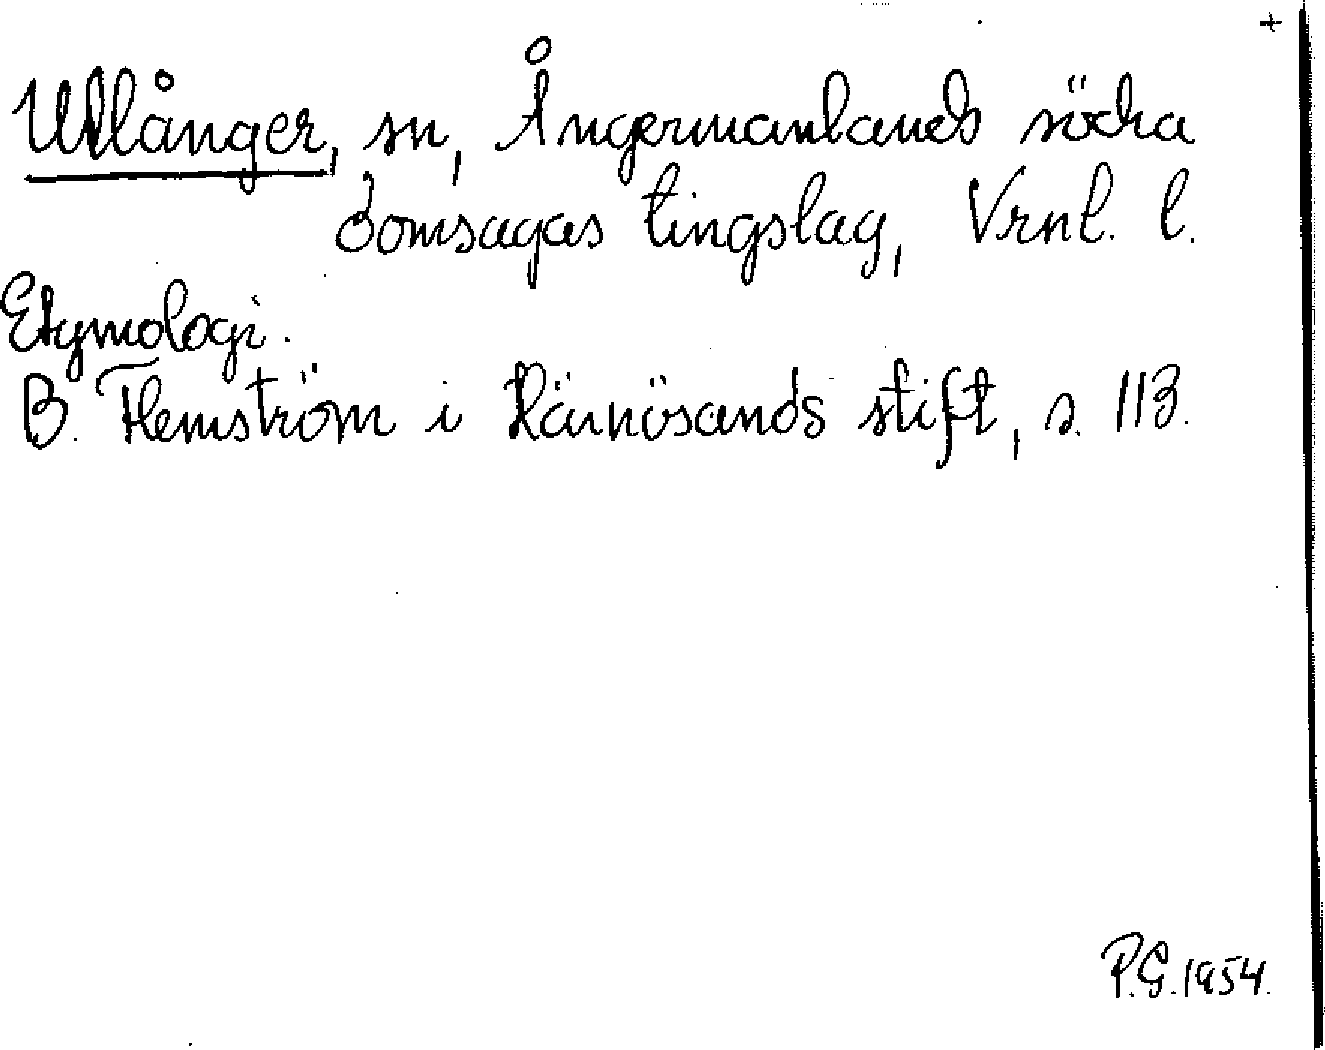 +
Ullånger, sn, Ångermanlands södra
domsagas tingslag, Vrnl. l.
Etymologi.
B. Flemström i Härnösands stift, s. 113.
P.G. 1954.